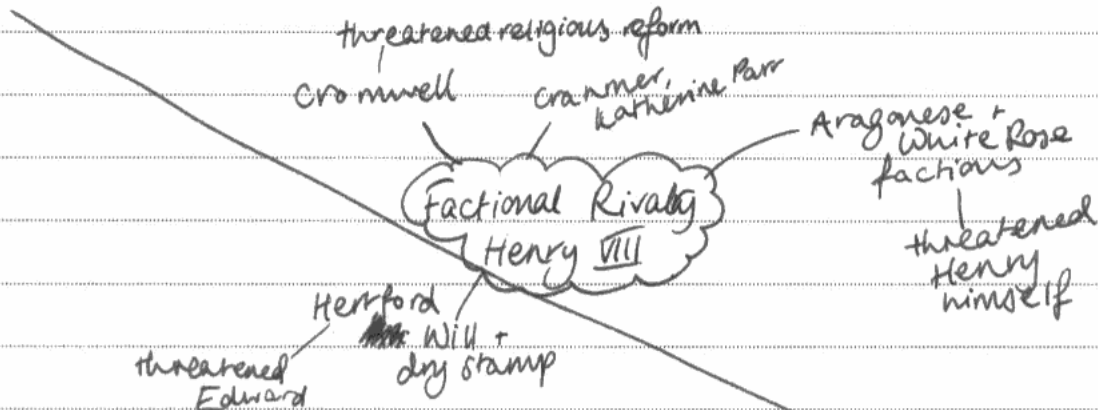 threatened religious reform
Cromwell
Cranmer,
Katherine Parr
Aragonese +
White Rose
factions
threatened
Henry
himself
Factional Rivalry
Henry VIII
Hertford
Will +
dry stamp
threatened
Edward